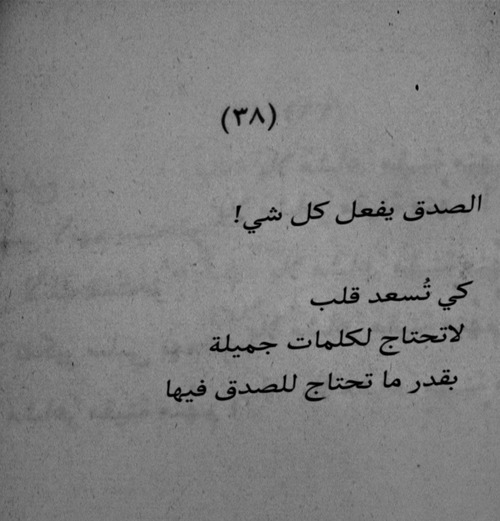 (٣٨)
الصدق يفعل كل شي!
كي تُسعد قلب
لاتحتاج لكلمات جميلة
بقدر ما تحتاج للصدق فيها